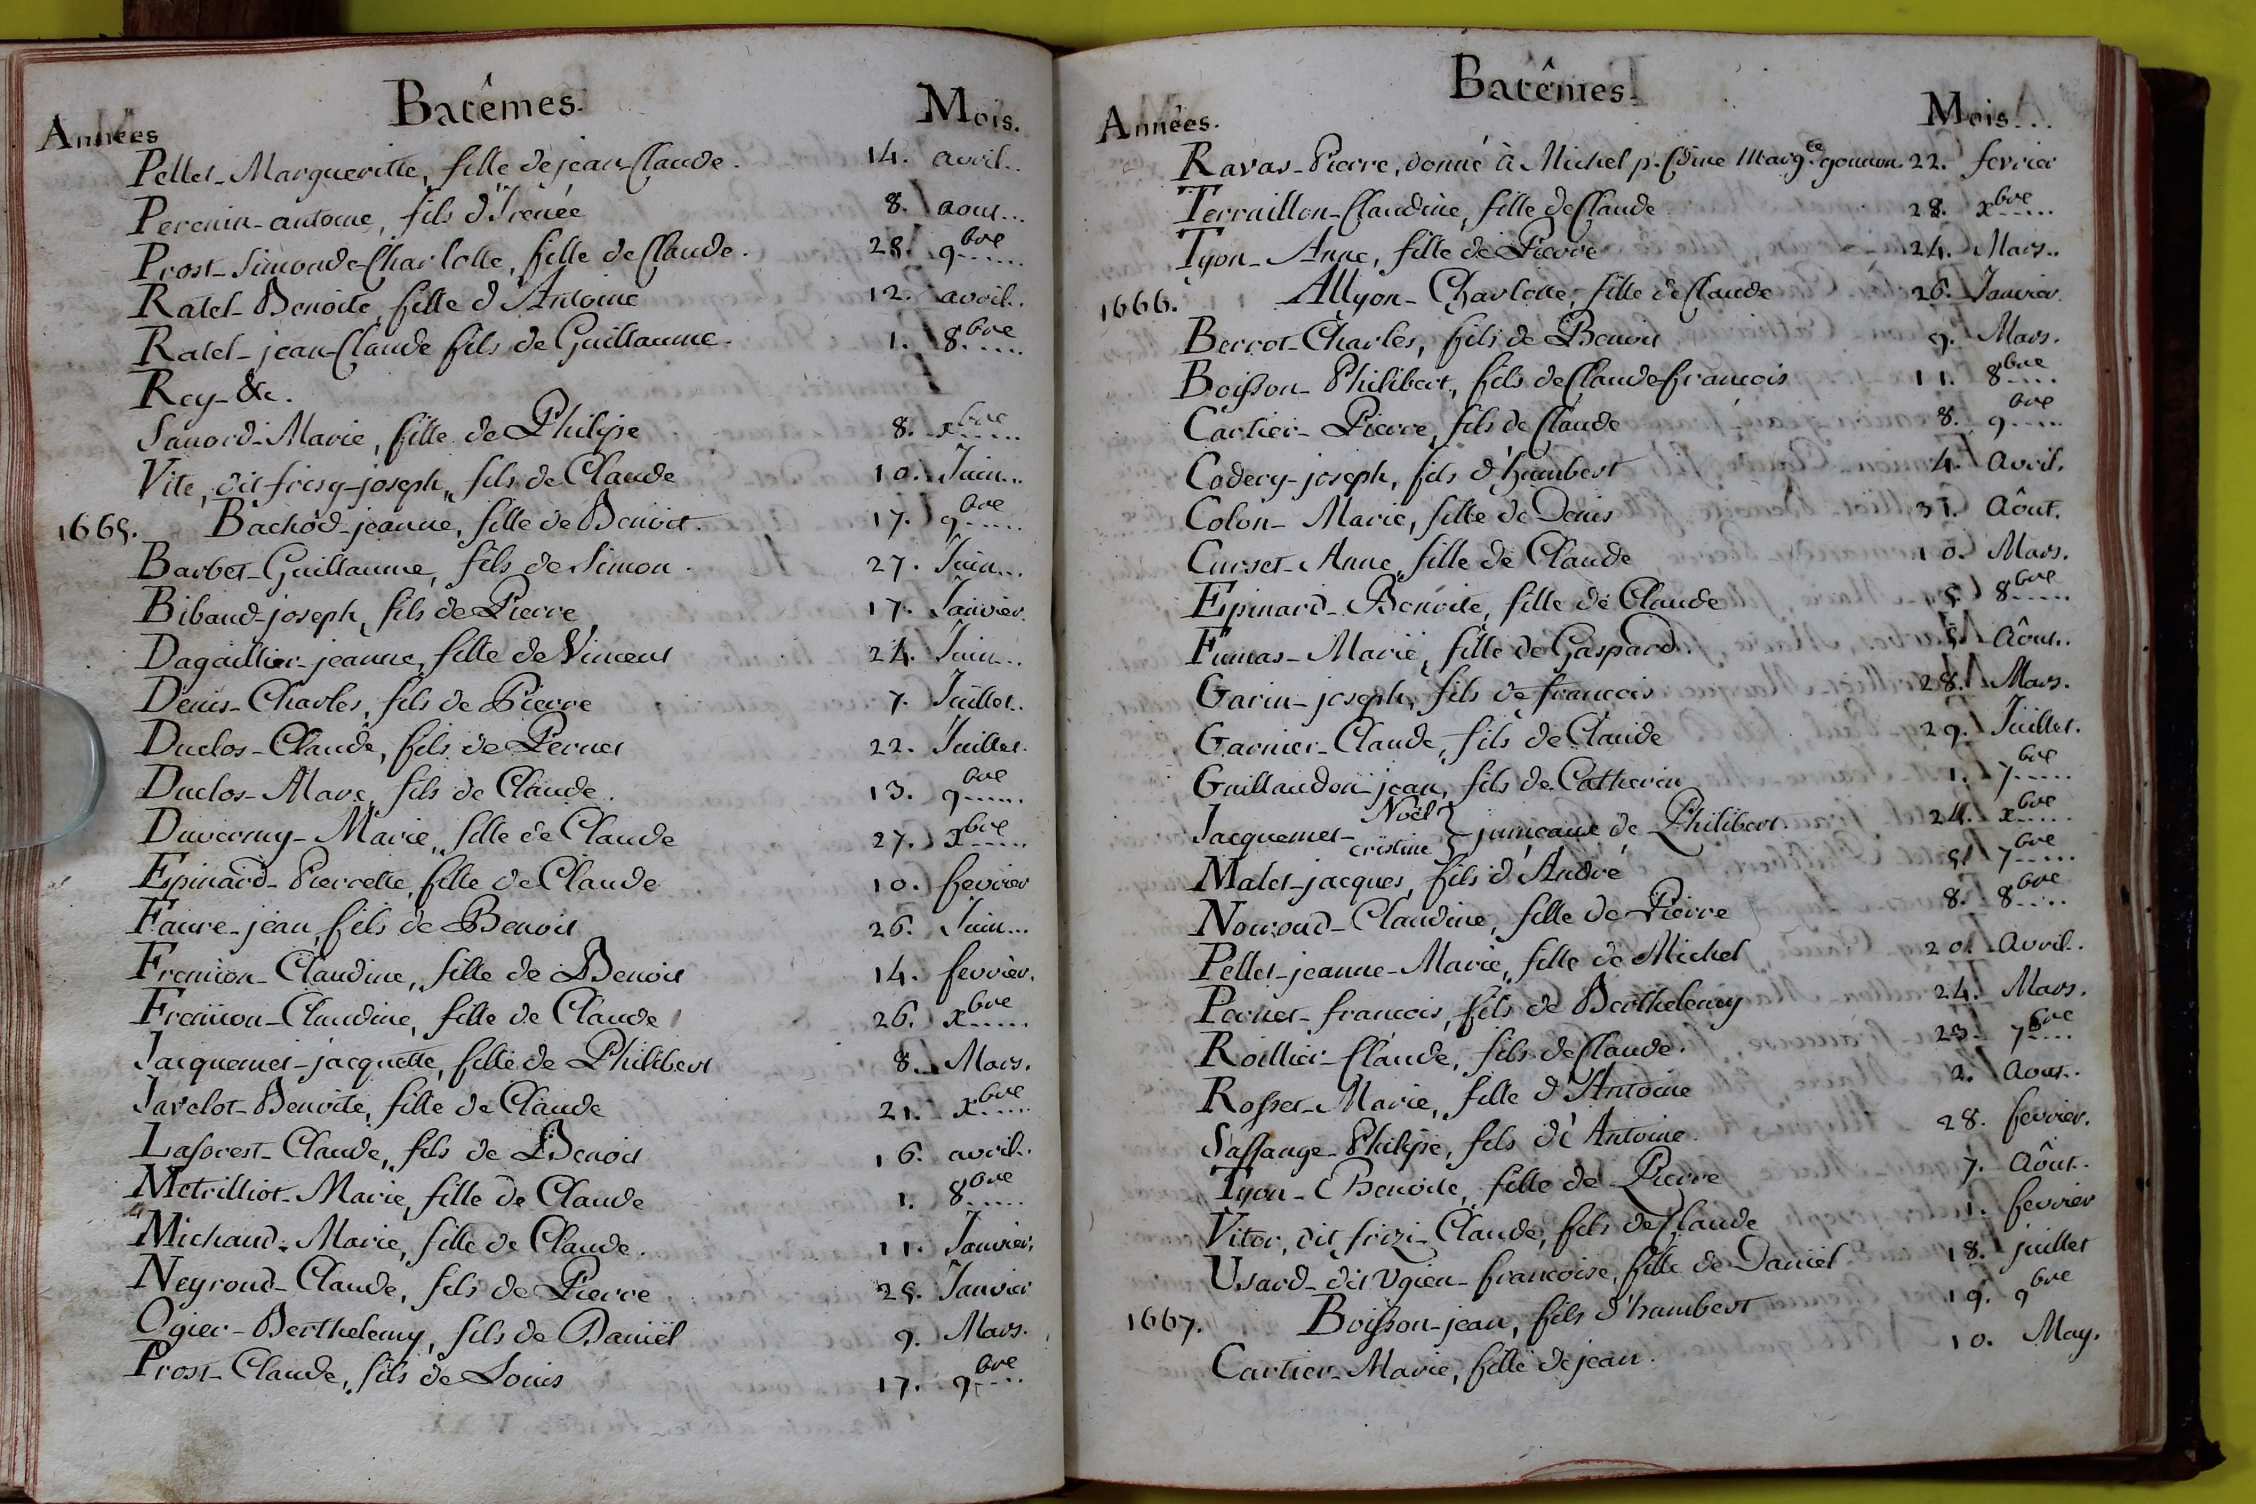 Batêmes.
Années Mois.
Pellet - Margueritte, fille de jean-Claude. 14. avril..
Perenin - antoine, fils d'Irénée 8. aout...
Prost - Simonde-Charlotte, fille de Claude. 28. 9bre......
Ratel - Benoite, fille d'Antoine 12. avril..
Ratel - jean-Claude fils de Guillaume. 1. 8bre.....
Rey - &c.
Sanord - Marie, fille de Philipe 8. xbre.....
Vite, dit frisy - joseph, fils de Claude 10. Juin...
1665. Bachod - jeanne, fille de Benoit. 17. 9bre.....
Barbet - Guillaume, fils de Simon. 27. Juin...
Biband - joseph, fils de Pierre 17. Janvier.
Dagaillier - jeanne, fille de Vincent 24. Juin...
Denis - Charles, fils de Pierre 7. Juillet..
Duclos - Claude, fils de Pernet 22. Juillet.
Duclos - Marc, fils de Claude. 13. 9bre......
Duverny - Marie, fille de Claude 27. xbre.....
Epinard - Pierrette, fille de Claude 10. fevrier
Faure - jean, fils de Benoit 26. Juin...
Fremion - Claudine, fille de Benoit 14. fevrier.
Fremion - Claudine, fille de Claude 26. xbre.....
Jacquemet - jacquette, fille de Philibert 8. Mars.
Javelot - Benoite, fille de Claude 21. xbre.....
Laforest - Claude, fils de Benoit 16. avril..
Metrilliot - Marie, fille de Claude 1. 8bre.....
Michaud - Marie, fille de Claude. 11. Janvier.
Neyroud - Claude, fils de Pierre 25. Janvier
Ogier - Berthelemy, fils de Daniël 9. Mars.
Prost - Claude, fils de Louis 17. 9bre....
Batêmes.
Années. Mois...
Ravas - Pierre, donné à Michel p. Cdine Margte gonnon. 22. fevrier
Terraillon - Claudine, fille de Claude 28. xbre.....
Tyon - Anne, fille de Pierre 24. Mars..
1666. Allyon - Charlotte, fille de Claude 26. Janvier.
Berrot - Charles, fils de Benoit 9. Mars.
Boisson - Philibert, fils de Claude francois 11. 8bre....
Cartier - Pierre, fils de Claude 8. 9bre.....
Codery - joseph, fils d'humbert 4. avril.
Colon - Marie, fille de Denis 31. Aôut.
Curset - Anne, fille de Claude 10. Mars.
Epinard - Benoite, fille de Claude 5. 8bre.....
Fumas - Marie, fille de Gaspard. 5. Aôut..
Garin - joseph, fils de francois 28. Mars.
Garnier - Claude, fils de Claude 29. Juillet.
Guillaudon - jean, fils de Catherin 1. 7bre.....
Jacquemet - Noël cristine } jumeaux de Philibert. 24. xbre.....
Malet - jacques, fils d'André 5. 7bre.....
Noiroud - Claudine, fille de Pierre 8. 8bre.....
Pellet - jeanne - Marie, fille de Michel 20. Avril..
Pernet - francois, fils de Berthelemy 24. Mars.
Roillier - Claude, fils de Claude. 23. 7bre....
Rosset - Marie, fille d'Antoine 2. Aout..
Sassange - Philipe, fils d'Antoine. 28. fevrier.
Tyon - Benoite, fille de Pierre 7. Aôut.
Vitor, dit frizi - Claude, fils de Claude 1. fevrier
Usard - dit Ugien - francoise, fille de Daniël 18. juillet
1667. Boisson - jean, fils d'humbert 19. 9bre
Cartier - Marie, fille de jean. 10. May.